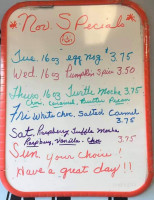 Nov. Specials
Tue. 16 oz egg nog $3.75
Wed. 16 oz Pumpkin Spice 3.50
Thurs 16 oz Turtle Mocha 3.75.
Choc, caramel,
Fri White Choc. Salted Caramel
3.75
Sat. Raspberry Truffle Mocha
Raspberry, Vanilla, Choc 3.75
Sun. your Choice!
Have a great day!!